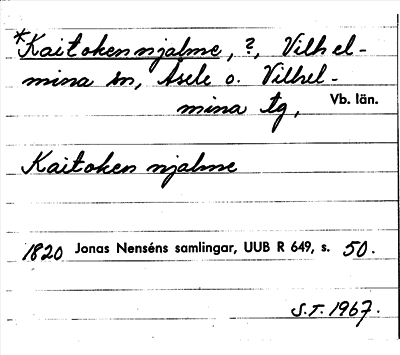 *Kaitoken njalme, ?, Vilhel-
mina sn, Åsele o. Vilhel-
mina tg, Vb. län.
Kaitoken njalme
1820 Jonas Nenséns samlingar, UUB R 649, s. 50.
S.T. 1967.